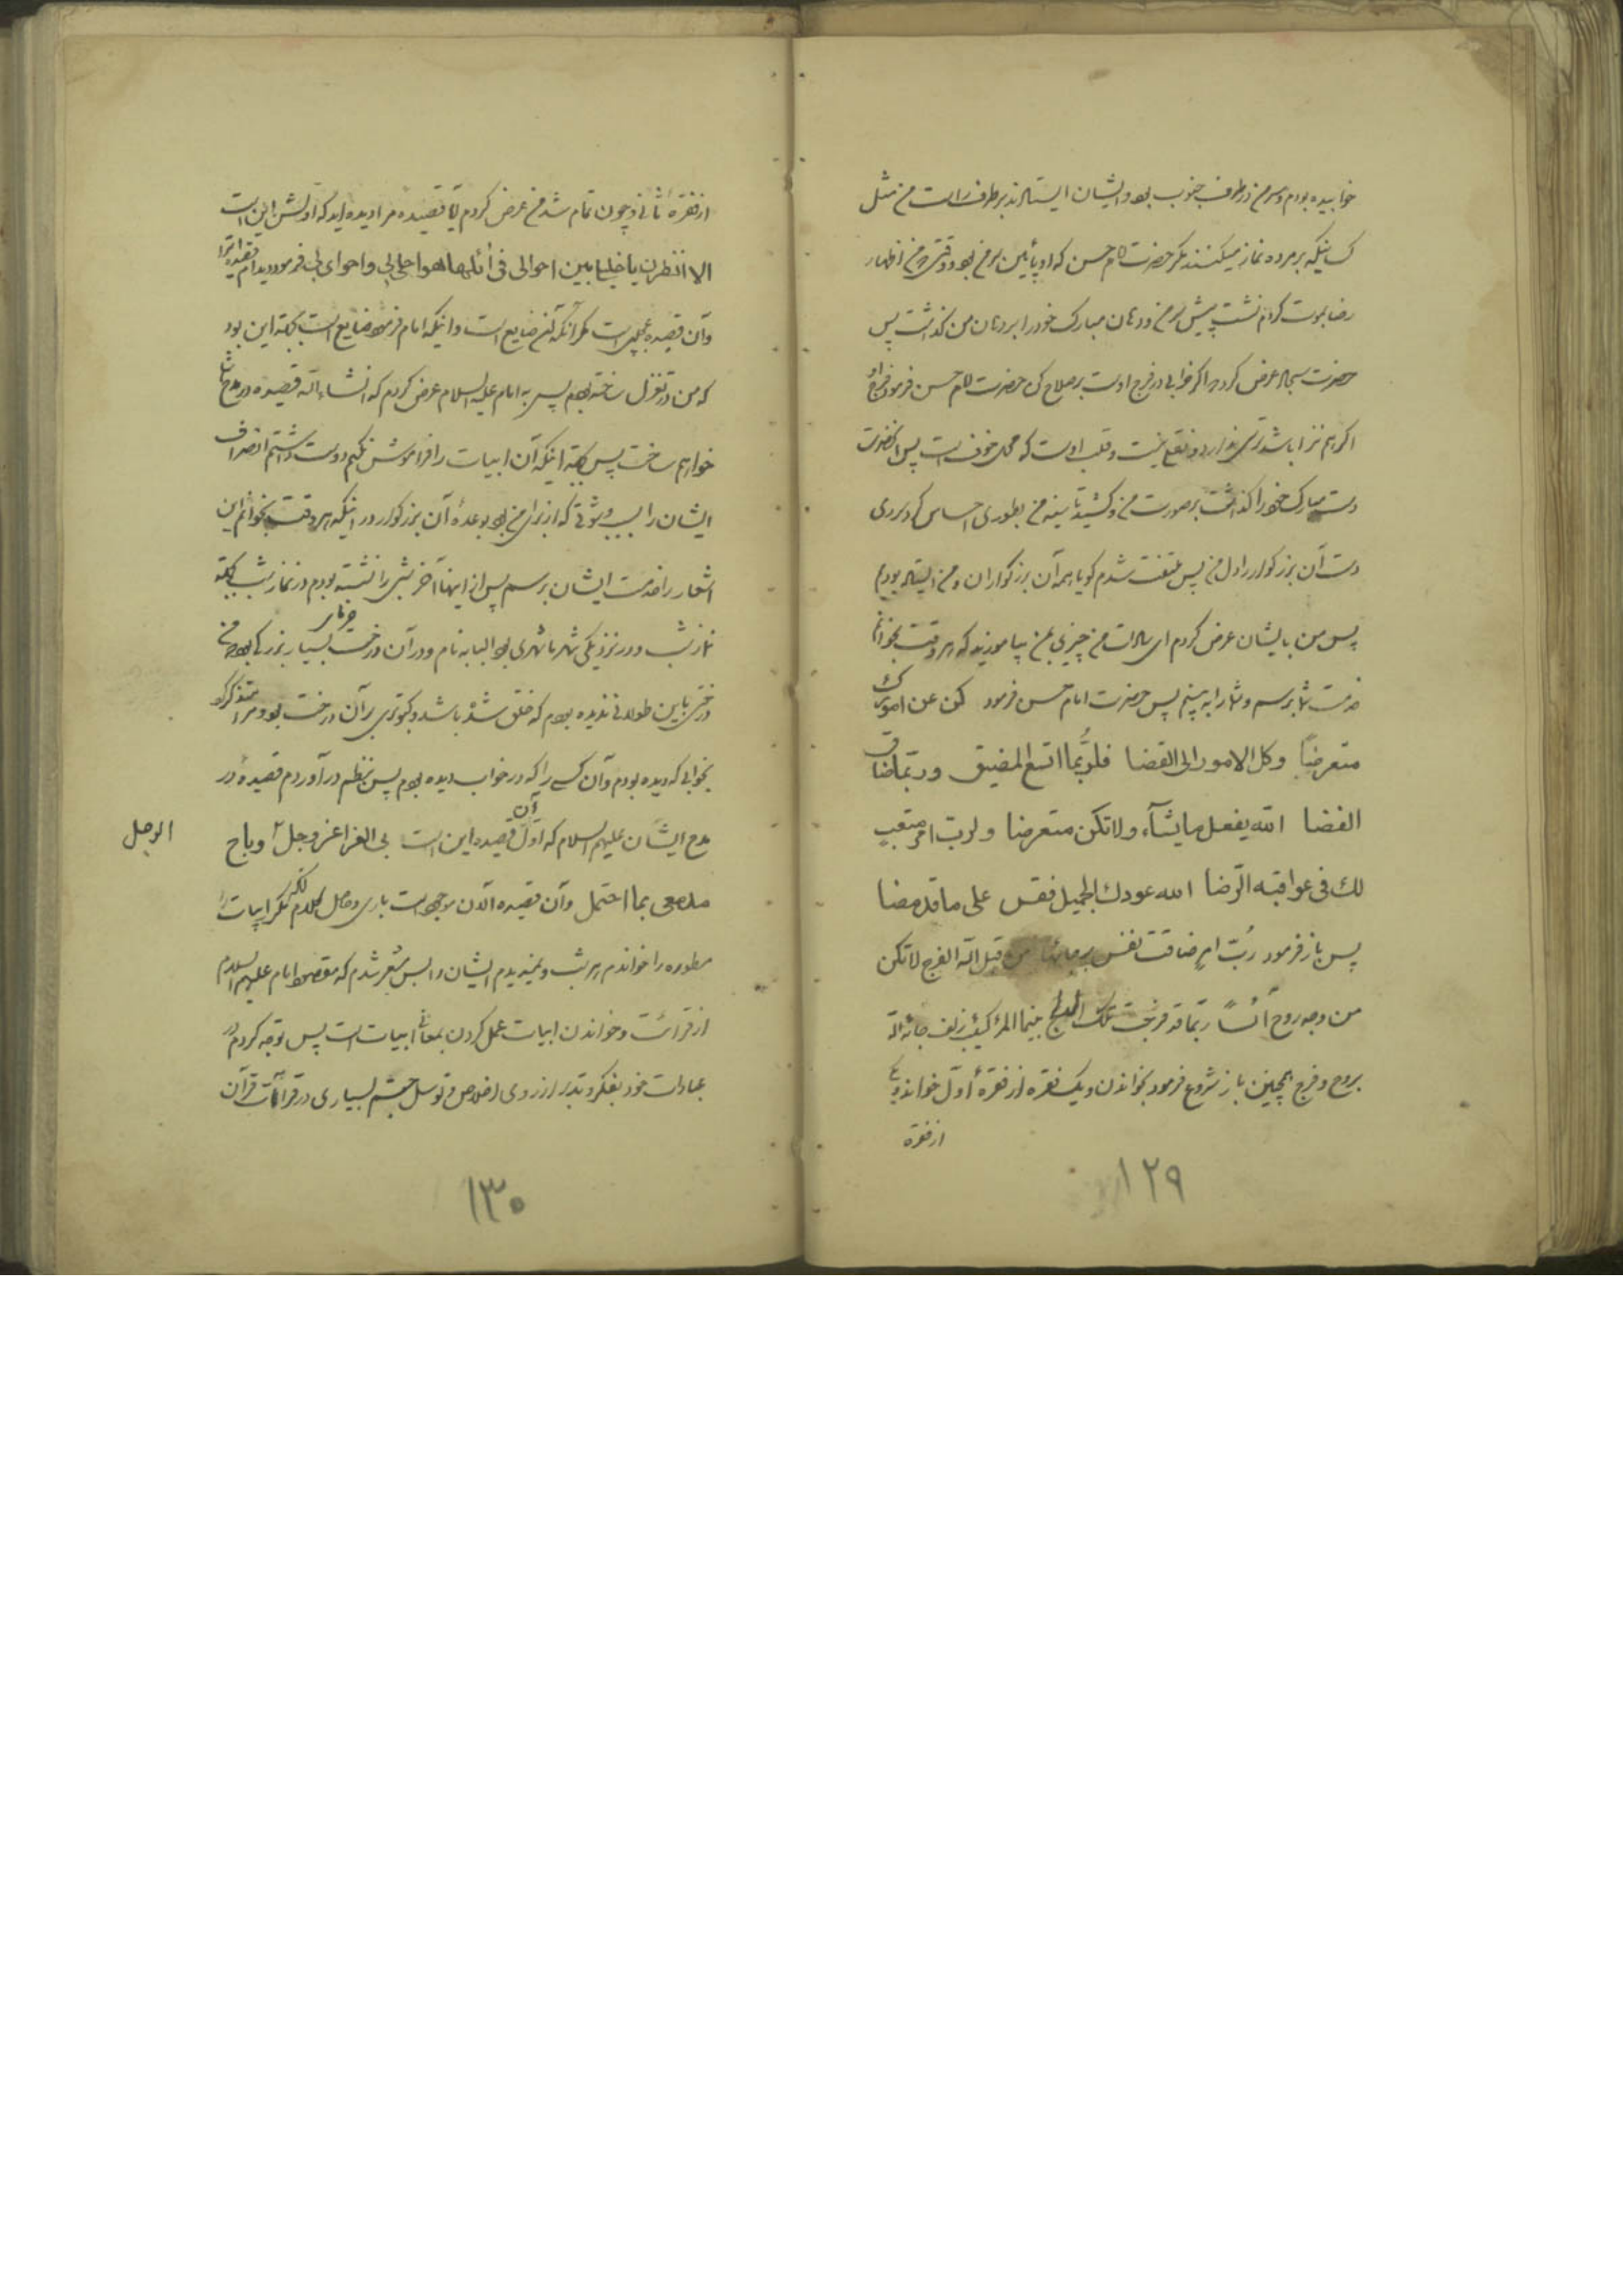 خوابیده بودم و سر من در طرف جنوب بود و ایشان ایستاده‌اند بر طرف راست من مثل
کسانیکه بر مرده نماز میکنند مگر حضرت امام حسن که او پائین سر من بود و وقتی من اظهار
رضا بموت کردم نشست پیش سر من و دهان مبارک خود را بر دهان من گذاشت پس
حضرت سجاد عرض کرد اگر خرابی در فرج اوست بر صلاح کن حضرت امام حسن فرمود فرج او
اگر هم خراب باشد ترسی ندارد و نقصی نیست و قلب اوست که محل خوف است پس آنحضرت
دست مبارک خود را گذاشت بر صورت من و کشید تا سینه من بطوری احساس کردم سردی
دست آن بزرگوار را در دل من پس ملتفت شدم گویا همه آن بزرگواران و من ایستاده بودیم
پس من بایشان عرض کردم ای سادات من چیزی بمن بیاموزید که هر وقت بخوانم
خدمت شما برسم و شما را به بینم پس حضرت امام حسن فرمود کن عن امورک
متعرضاً وکل الامور الی القضا فلربّما اتسع المضیق وربّما ضاق
الفضا الله یفعل ما یشآء ولا تکن متعرضا ولرب امر متعب
لك فی عواقبه الرّضا الله عودك الجمیل فقس علی ما قد مضا
پس باز فرمود رُبّ امرٍ ضاقت نفس من قبل اللّه الفرج لا تکن
من وجه روح آئساً ربّما قد فرجت تلک الرتج بینما المرء کئیب دنف جائه اللّه
بروح و فرج همچنین باز شروع فرمود بخواندن و یک فقره از فقرهٔ اوّل خواند و یکی
از فقره
۱۲۹
از فقرهٔ ثانی و چون تمام شد من عرض کردم آیا قصیده مرا دیده‌اید که اولش این است
الا انظرن یا خلیلی بین احوالی فی ایّها هو احلی لی واحوای لی فرمود دیدم آن قصیده را
و آن قصیده عجیبی است مگر آنکه آن ضایع است و اینکه امام فرمود ضایع است بجهة این بود
که من در تغزل ساخته بودم پس به امام علیه السلام عرض کردم که انشاء اللّه قصیده در مدح شما
خواهم ساخت پس بجهة اینکه آن ابیات را فراموش نکنم دوست داشتم انصراف
ایشان را بسبب وثوقی که از برای من بود بوعدهٔ آن بزرگوار در اینکه هر وقت بخوانم این
اشعار را خدمت ایشان برسم پس از اینها آخر شبی را نشسته بودم در نماز شب بجهة
نماز شب و در نزدیکی شهر ما شهری بود البابه نام و در آن درخت خرمای بسیار بزرگی بود که من
درختی باین طولانی ندیده بودم که خلق شده باشد و کبوتری بر آن درخت بود و مرا متذکر کرد
بخوابی که دیده بودم و آن کسی را که در خواب دیده بودم پس بنظم در آوردم قصیدهٔ در
مدح ایشان علیهم السلام که اوّل آن قصیده این است بی الغرا عز وجل وباح
الوجل
مدمعی بما احتمل و آن قصیده الان موجود است باری و حاصل کلام آنکه مکرر ابیات را
مسطوره را خواندم هر شب و نمیدیدم ایشان را پس مشعر شدم که مقصود امام علیهم السلام
از قرائت و خواندن ابیات عمل کردن بمعانی ابیات است پس توجه کردم در
عبادات خود بفکر و تدبر از روی اخلاص و توسل جستم بسیاری در قرآئت قرآن
۱۳۰